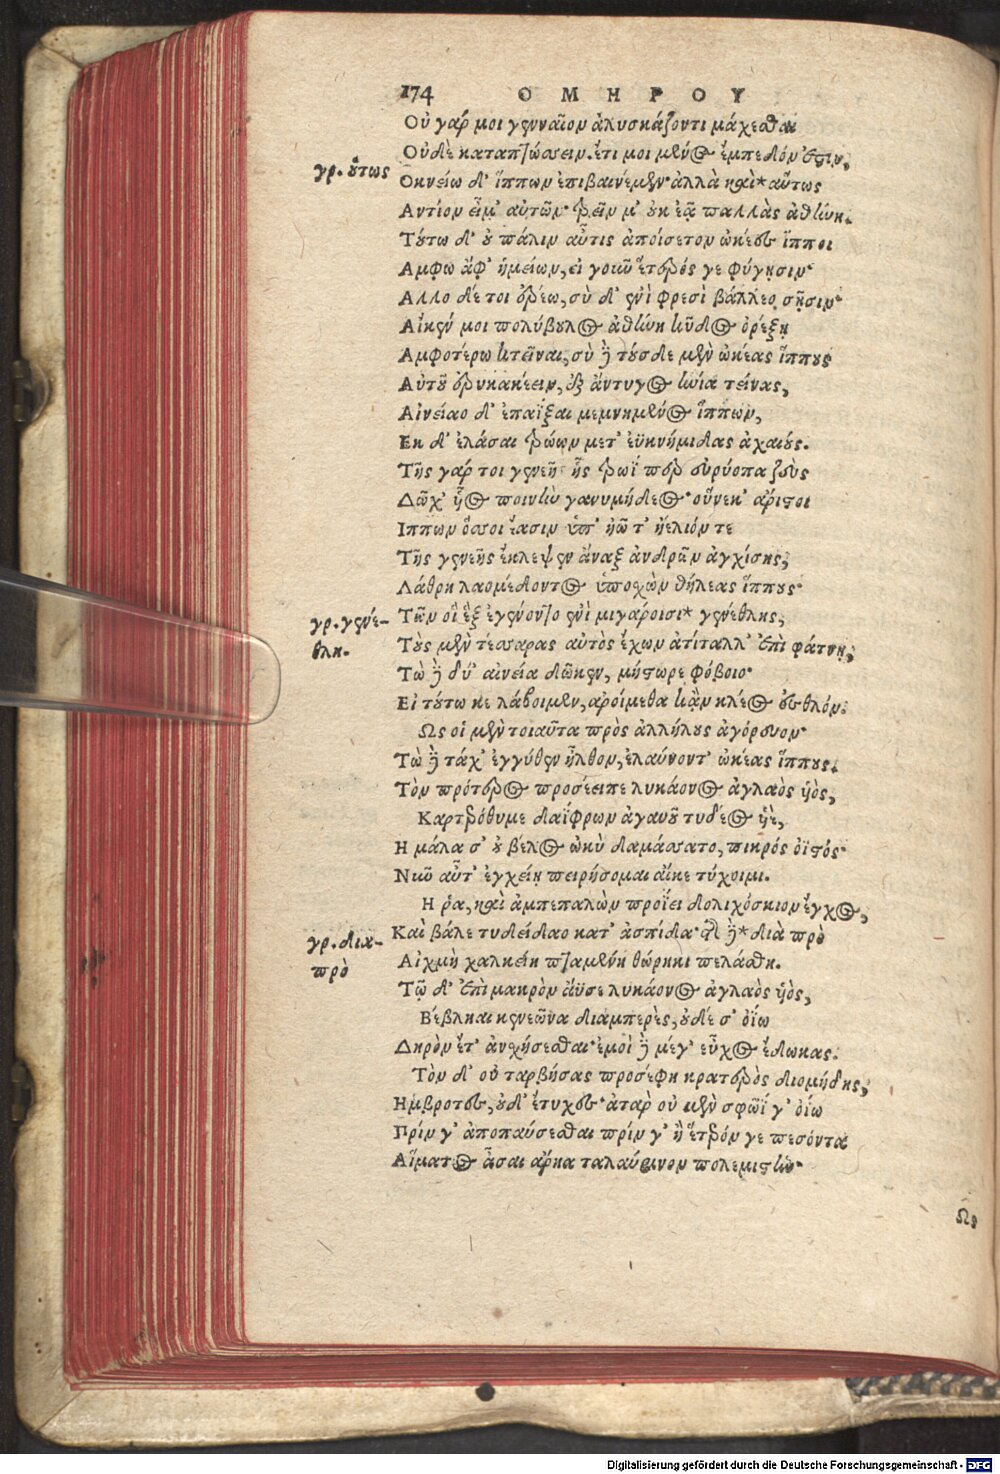 174 ΟΜΗΡΟΥ
Οὐ γάρ μοι γενναῖον ἀλυσκάζοντι μάχεσθαι
Οὐδὲ καταπτώσσειν. ἔτι μοι μένος ἔμπεδόν ἐστιν,
γρ. οὕτως
Οκνείω δ' ἵππων ἐπιβαινέμεν· ἀλλὰ καὶ* αὔτως
Αντίον εἶμ' αὐτῶν· τρεῖν μ' οὐκ ἐᾷ παλλὰς ἀθήνη.
Τούτω δ' οὐ πάλιν αὖτις ἀποίσετον ὠκέες ἵπποι
Αμφω ἀφ' ἡμείων, εἰ γοῦν ἕτερός γε φύγησιν·
Αλλο δέ τοι ἐρέω, σὺ δ' ἐνὶ φρεσὶ βάλλεο σῇσιν·
Αἴκέν μοι πολύβουλος ἀθήνη κῦδος ὀρέξῃ
Αμφοτέρω κτεῖναι, σὺ δὲ τούσδε μὲν ὠκέας ἵππους
Αὐτοῦ ἐρυκακέειν, ἐξ ἄντυγος ἡνία τείνας,
Αἰνείαο δ' ἐπαΐξαι μεμνημένος ἵππων,
Εκ δ' ἐλάσαι τρώων μετ' ἐϋκνήμιδας ἀχαιούς.
Τῆς γάρ τοι γενεῆς ἧς τρωΐ περ εὐρύοπα ζεὺς
Δῶχ' ὗος ποινὴν γανυμήδεος· οὕνεκ' ἄριστοι
Ιππων ὅσσοι ἔασιν ὑπ' ἠῶ τ' ἠέλιόν τε
Τῆς γενεῆς ἔκλεψεν ἄναξ ἀνδρῶν ἀγχίσης,
Λάθρη λαομέδοντος ὑποσχὼν θήλεας ἵππους·
γρ. γενέ-
Τῶν οἳ ἓξ ἐγένοντο ἐνὶ μεγάροισι* γενέθλης,
θλη.
Τοὺς μὲν τέσσαρας αὐτὸς ἔχων ἀτίταλλ' ἐπὶ φάτνῃ,
Τὼ δὲ δύ' αἰνείᾳ δῶκεν, μήστωρε φόβοιο·
Εἰ τούτω κε λάβοιμεν, ἀροίμεθα κὰν κλέος ἐσθλόν.
Ως οἱ μὲν τοιαῦτα πρὸς ἀλλήλους ἀγόρευον·
Τὼ δὲ τάχ' ἐγγύθεν ἦλθον, ἐλαύνοντ' ὠκέας ἵππους.
Τὸν πρότερος προσέειπε λυκάονος ἀγλαὸς ὑὸς,
Καρτερόθυμε δαΐφρων ἀγαυοῦ τυδέος ὑὲ,
Η μάλα σ' οὐ βέλος ὠκὺ δαμάσσατο, πικρός ὀϊστός·
Νῦν αὖτ' ἐγχείῃ πειρήσομαι αἴκε τύχοιμι.
Η ῥα, καὶ ἀμπεπαλὼν προΐει δολιχόσκιον ἔγχος,
γρ. δια-
Καὶ βάλε τυδείδαο κατ' ἀσπίδα· τὴν δὲ* διὰ πρὸ
πρὸ
Αἰχμὴ χαλκείη πταμένη θώρηκι πελάσθη.
Τῷ δ' ἐπὶ μακρὸν ἄϋσε λυκάονος ἀγλαὸς ὑὸς,
Βέβληαι κενεῶνα διαμπερὲς, οὐδέ σ' ὀΐω
Δηρὸν ἔτ' ἀνσχήσεσθαι· ἐμοὶ δὲ μέγ' εὖχος ἔδωκας.
Τὸν δ' οὐ ταρβήσας προσέφη κρατερὸς διομήδης,
Ημβροτες, οὐδ' ἔτυχες· ἀτὰρ οὐ μὲν σφῶΐ γ' ὀΐω
Πρίν γ' ἀποπαύσεσθαι πρίν γ' ἢ ἕτερόν γε πεσόντα
Αἵματος ἆσαι ἄρηα ταλαύρινον πολεμιστήν·
Ως
Digitalisierung gefördert durch die Deutsche Forschungsgemeinschaft - DFG